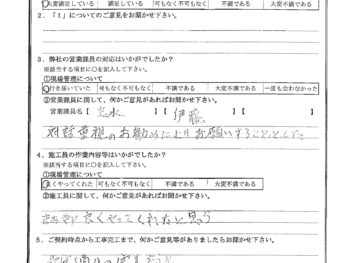 大変満足している 満足している 可もなく不可もなく 不満である 大変不満である
2．「1」についてのご意見をお聞かせ下さい。
3．弊社の営業課員の対応はいかがでしたか？
※該当する項目に○を記入して下さい。
①現場管理について
行き届いていた 可もなく不可もなく 不満である 大変不満である 一度も会わなかった
②営業課員に関して、何かご意見があればお聞かせ下さい。
営業課員名【 志水 】【 伊藤 】【 】
お勧めによりお願いすることとした
4．施工員の作業内容等はいかがでしたか？
※該当する項目に○を記入して下さい。
①現場管理について
良くやってくれた 可もなく不可もなく 不満である 大変不満である
②施工員に関して、何かご意見があればお聞かせ下さい。
良くやってくれたと思う
5．ご契約時点から工事完工まで、何かご意見等がありましたらお聞かせ下さい。